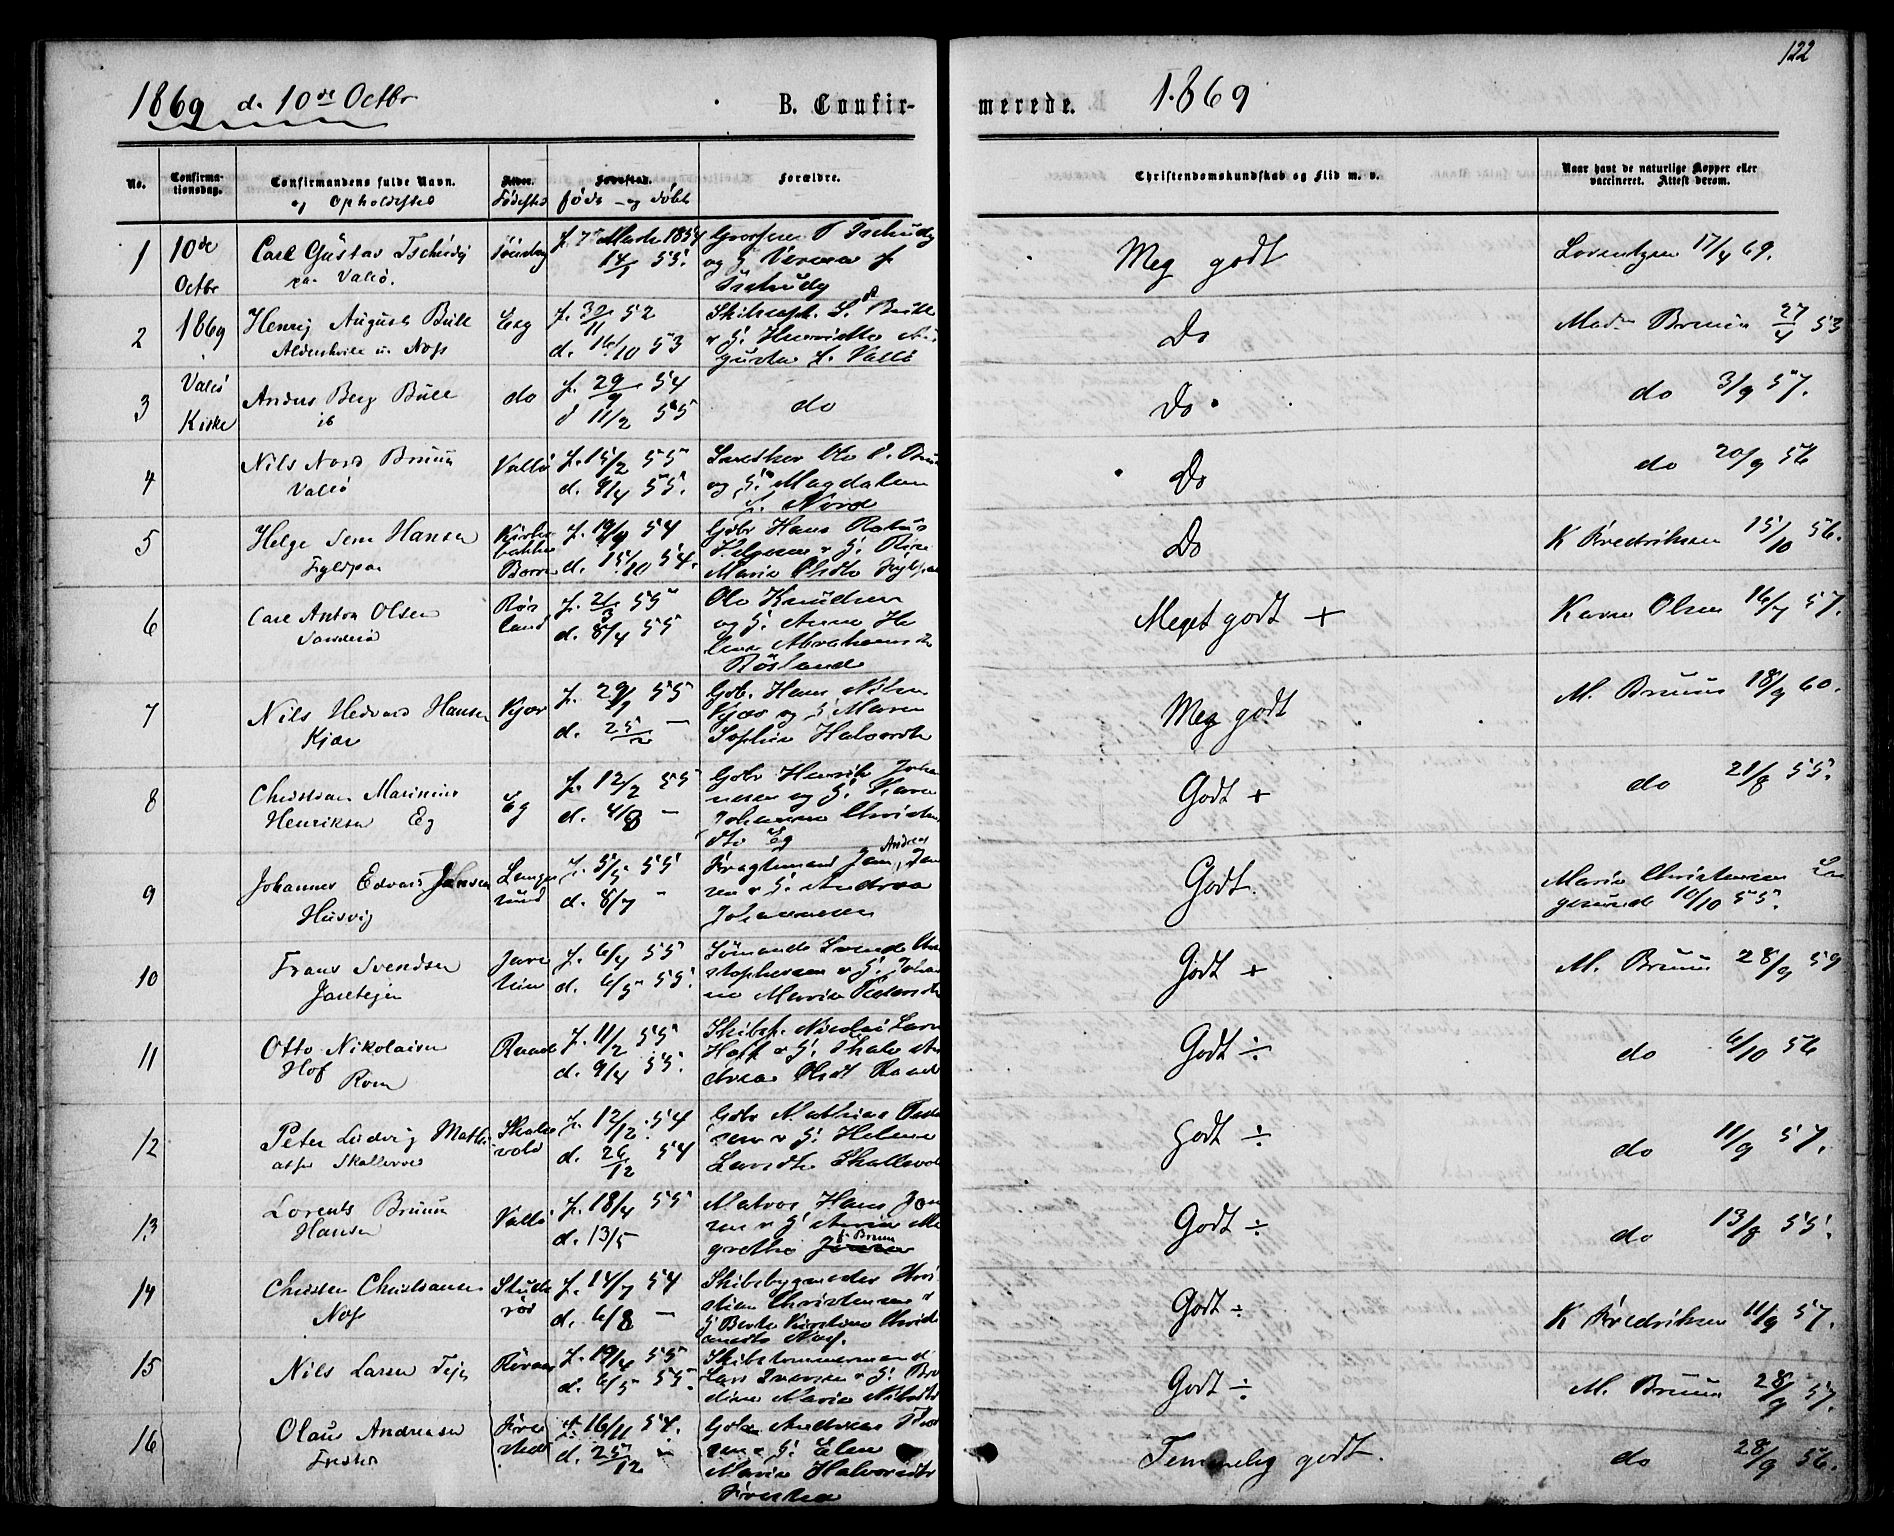 122
1869 d. 10de Octbr
B. Confir-
merede.
1869
No.
Confirma-
tionsdag.
Confirmandens fulde Navn.
og Opholdssted
Alder.
Fødested
Fødested.
føds- og døbt
Forældre.
Christendomskundskab og Flid m. v.
Naar havt de naturlige Kopper eller
vaccineret. Attest derom.
1
10de
Octbr
Carl Gustav Tschudy
Valø.
f. 7 Marts 1854
14/1 55.
og H. Verena f.
Tschudy
Meg godt
Lorentzen 17/4 69.
2
1869
Henrij August Bull
Næs
Eeg
f. 30/11 52
d. 16/10 53
Skibscapt. S. Bull
gusta f. Vallø
Do
Bruun 27/4 53
3
Valø
Kirke
Anders Berg Bull
ib
do
f. 29/9 54
d 11/2 55
do
Do
do 3/9 57.
4
Nils Nord Bruun
Vallø
Vallø
f. 15/2 55
d. 9/4 55.
og H. Magdalene
f. Nord
Do
do 20/9 56
5
Helge Sem Hansen
Fyldpaa
Kirke
bakken
Borre
f. 19/9 54
d. 15/10 54.
Gbr Hans
Helgesen
Marie Olsdtr
Do
K Fredriksen 15/10 56.
6
Carl Anton Olsen
Røs
land
f. 21/3 55
d. 8/4 55
Ole Knudsen
og H. Anne He
lene Abrahamsdtr
Røsland
Meget godt +
Karen Olsen 16/7 57.
7
Nils Hedvard Hansen
Kjær
Kjær
f. 29/1 55
d. 25/2 —
Gbr. Hans Nilsen
Kjær og H. Maren
Sophie Halvordtr
Meg godt
M. Bruun 18/9 60.
8
Christian Marinius
Henriksen Eg
Eg
f. 12/2 55
d. 4/8 —
Gbr Henrik Joha
nesen og H. Karen
Johanne Christens
dtr Eg
Godt +
do 21/8 55.
9
Johannes Edvard Jansen
Husvig
Lange
sund
f. 5/5 55
d. 8/7 "
Fragtemand Jan Andreas Jan
sen & H. Andrea
Johannesen
Godt.
Maria Christensen La
gesund 10/10 55.
10
Frans Svendsen
Jarltejen
f. 6/4 55
d. 6/5 55.
Sømand Svend Chri
stophersen & H. Johan
ne Maria Pedersdtr
Godt +
M. Bruun 28/9 59
11
Otto Nikolaisen
Hof
f. 11/2 55
d. 9/4 55.
Skibsk. Nicolai Larsen
Hoff & H. Thale An
drea Olsdt
Godt ÷
do 6/10 56
12
Peter Ludvig Mathi
asen Skallevold
Skalle
vold
f. 12/12 54
d. 26/12 54
Gbr Mathias
sen & H. Helene
Larsdtr Skallevold
Godt ÷
do 11/9 57.
13
Lorents Bruun
Hansen
Vallø
f. 18/4 55
d. 13/5
Matros Hans Jan
sen & H. Anne Ma
grethe f. Bruun
Godt ÷
do 13/8 55.
14
Christen Christiansen
Næs
f. 14/7 54
d. 6/8 —
Skibsbygmester Kri
stian Christensen &
H Berte Kirstine Christi
ansdtr Næs.
Godt ÷
K Fredriksen 11/9 57.
15
Nils Larsen
f. 19/4 55
d. 6/5 55.
Skibstømmermand
Lars Iversen & H. Bre
dine Marie Nilsdtr
Godt ÷
M. Bruun 28/9 57.
16
Olaus Andreasen
f. 16/11 54.
d. 25/12 "
Gbr Andreas
sen & H. Elen
Maria Halvorsdtr
Temmelig godt.
do 28/9 56.